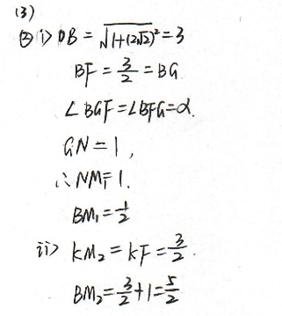 (3)
② i> OB = √1+(2√2)² = 3
BF = 3/2 = BG
∠BGF = ∠BFG = α.
GN = 1,
∴ NM₁ = 1.
BM₁ = 1/2
ii> KM₂ = KF = 3/2.
BM₂ = 3/2 + 1 = 5/2